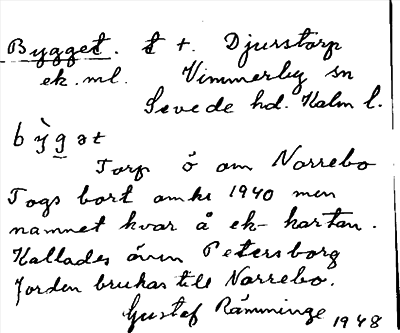 Bygget. t t. Djurstorp
ek. ml. Vimmerby sn
Sevede hd. Kalm l.
bỳgət
Torp ö om Norrebo
Togs bort omkr 1940 men
namnet kvar å ek-kartan.
Kallades även Petersborg
Jorden brukas till Norrebo.
Gustaf Rämminge 1948